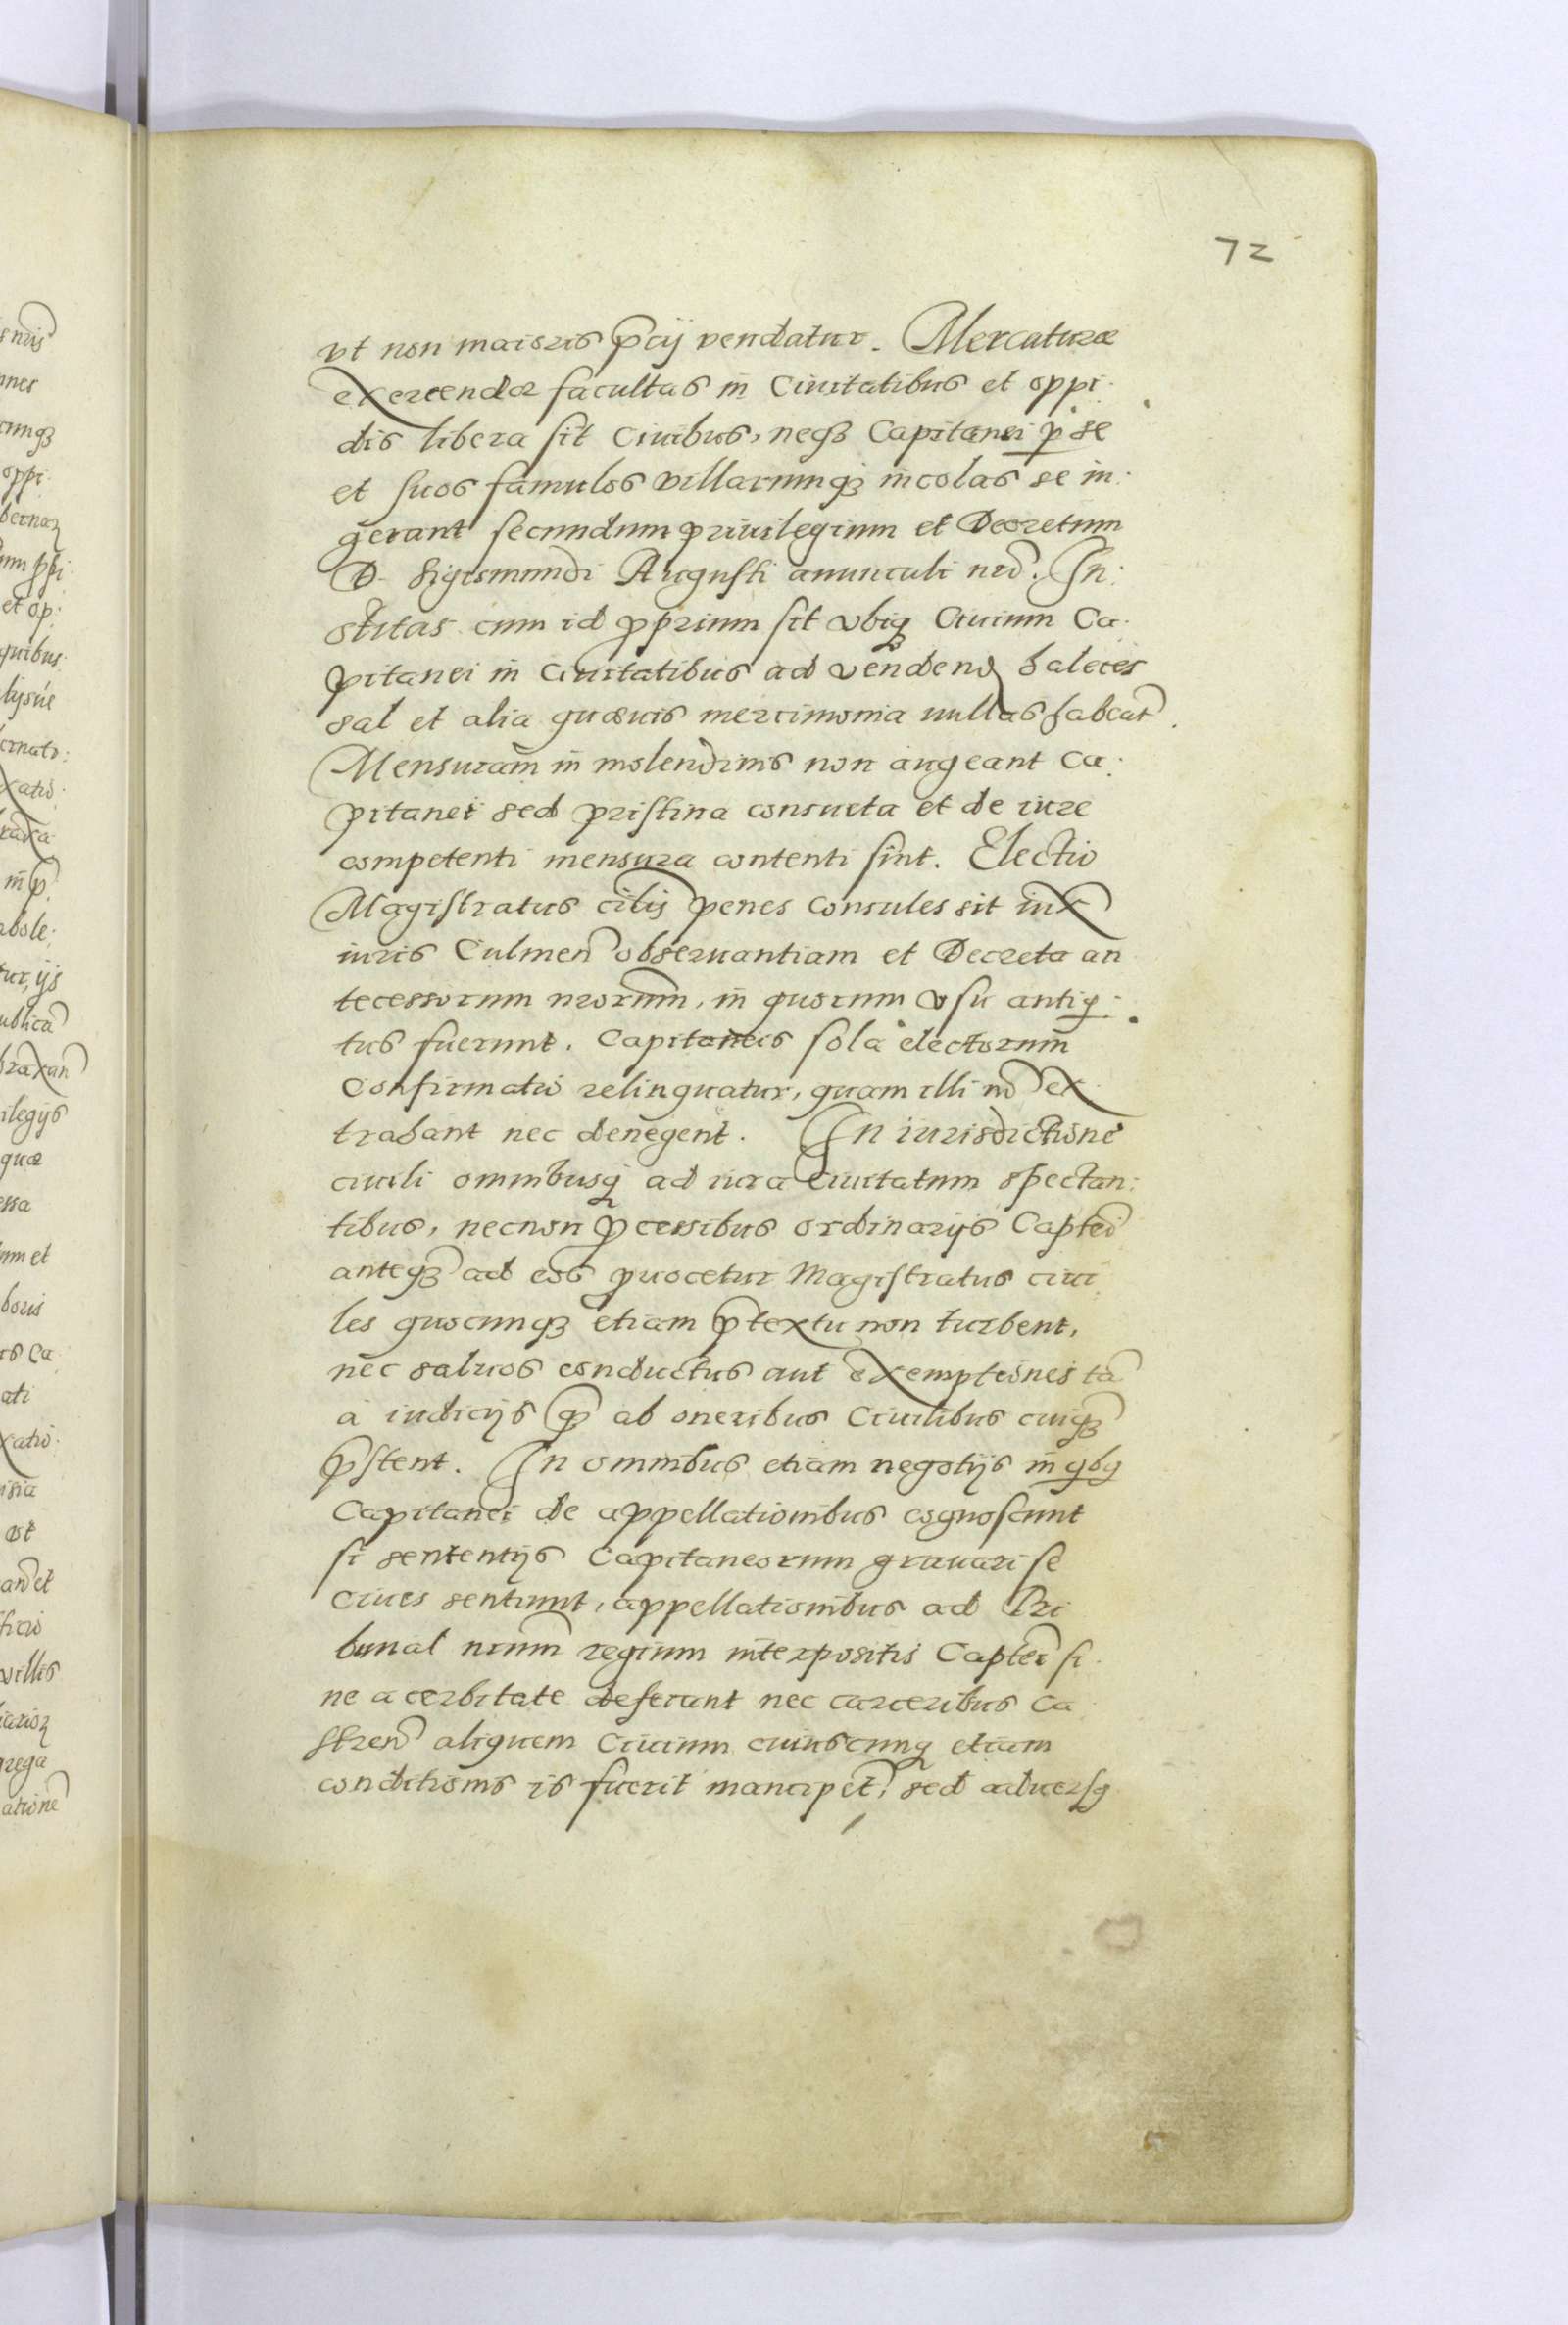 72
vt non maioris p̄cij vendatur. Mercaturæ
exercendæ facultas in Ciuitatibus et oppi:
dis libera sit Ciuibus, neqꝫ Capitanei ꝑ se
et suos famulos villarumqꝫ incolas se in:
gerant secundum priuilegium et Decretum
D. Sigismundi Augusti auunculi nrī. In:
stitas cum id ꝓprium sit vbiqꝫ Ciuium Ca:
pitanei in Ciuitatibus ad vendend haleces
sal et alia quæuis mercimonia nullas habeat̄.
Mensuram in molendinis non augeant Ca:
pitanei sed pristina consueta et de iure
competenti mensura contenti sint. Electio
Magistratus ciīlis penes Consules sit iux̄
iuris Culmeñ obseruantiam et Decreta an
tecessorum nrorum̄, in quorum vsu antiq:
tus fuerunt. Capitaneis sola electorum
Confirmatio relinquatur, quam illi nō ex
trahant nec denegent. In iurisdictione
ciuili omnibusqꝫ ad iura Ciuitatum spectan:
tibus, necnon ꝓcessibus ordinarijs Capteī
anteqꝫ̄ ad eos ꝓuocetur Magistratus ciui
les quocunqꝫ etiam p̄textu non turbent,
nec saluos conductus aut exemptiones tā
a iudicijs q̄ ab oneribus Ciuilibus cuiqꝫ̄
p̄stent. In omnibus etiam negotijs in qbꝯ
Capitanei de appellationibus cognoscunt
si sententijs Capitaneorum grauari se
Ciues sentiunt, appellationibus ad Tri
bunal nrum̄ regium interpositis Capteī si:
ne acerbitate deferant nec carceribus Ca
streñ aliquem Ciuium cuiuscunqꝫ etiam
conditionis is fuerit mancipet̄, sed aduersꝯ